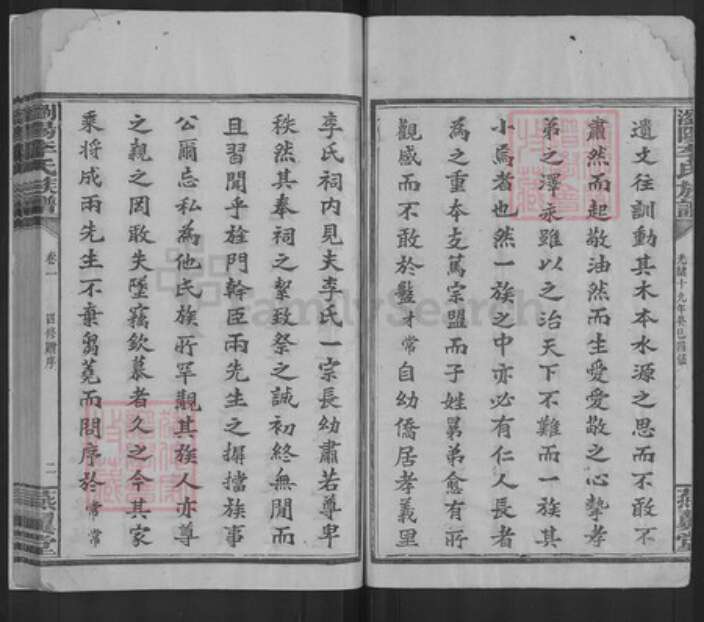 遺文往訓動其木本水源之思而不敢不
肅然而起敬油然而生愛愛敬之心摯孝
弟之澤永雖以之治天下不難而一族其
小焉者也然一族之中亦必有仁人長者
為之重本支篤宗盟而子姓舅弟愈有所
觀感而不敢於鬩才常自幼僑居孝義里
李氏祠內見夫李氏一宗長幼肅若尊卑
秩然其奉祠之潔致祭之誠初終無間而
且習聞乎旌門幹臣兩先生之摒擋族事
公爾忘私為他氏族所罕覯其族人亦尊
之親之罔敢失墜竊欽慕者久之今其家
乘將成兩先生不棄芻蕘而問序於常常
瀏陽李氏族譜
光緒十九年癸巳
瀏陽李氏族譜
卷一
四修贈序
二
堂
FamilySearch